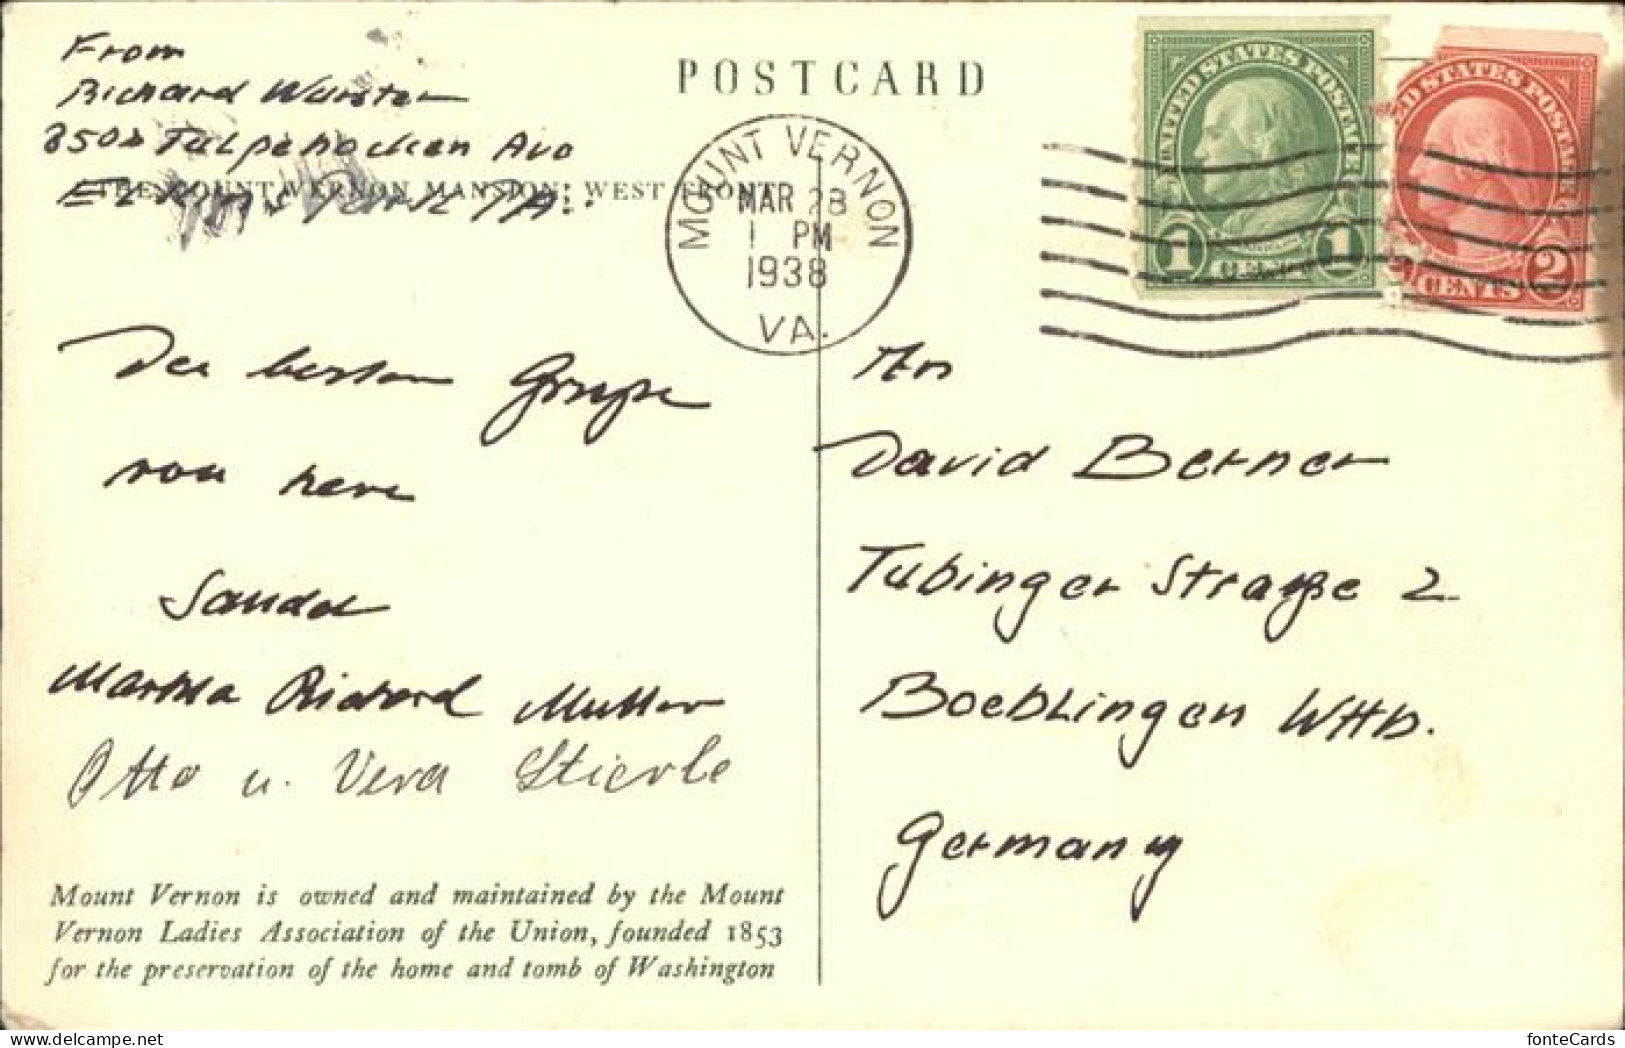 From
Richard Wurster
8502 Tulpehocken Ave
Elkins Park PA.
THE MOUNT VERNON MANSION: WEST FRONT
POSTCARD
MOUNT VERNON
MAR 28
1 PM
1938
VA.
UNITED STATES POSTAGE
1 CENT 1
UNITED STATES POSTAGE
2 CENTS 2
Die besten Grüße
von hier
Sandel
Martha Richard Muller
Otto u. Vera Stierle
Mount Vernon is owned and maintained by the Mount
Vernon Ladies Association of the Union, founded 1853
for the preservation of the home and tomb of Washington
An
David Berner
Tubinger Straße 2
Boeblingen
Germany
fonteCards